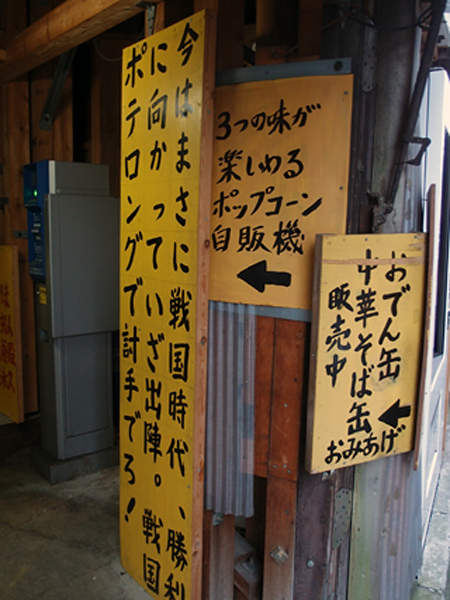 今はまさに戦国時代、勝利
に向かっていざ出陣。戦国
ポテロングで討手でろ！
3つの味が
楽しめる
ポップコーン
自販機
←
おでん缶
中華そば缶
販売中
←
おみあげ